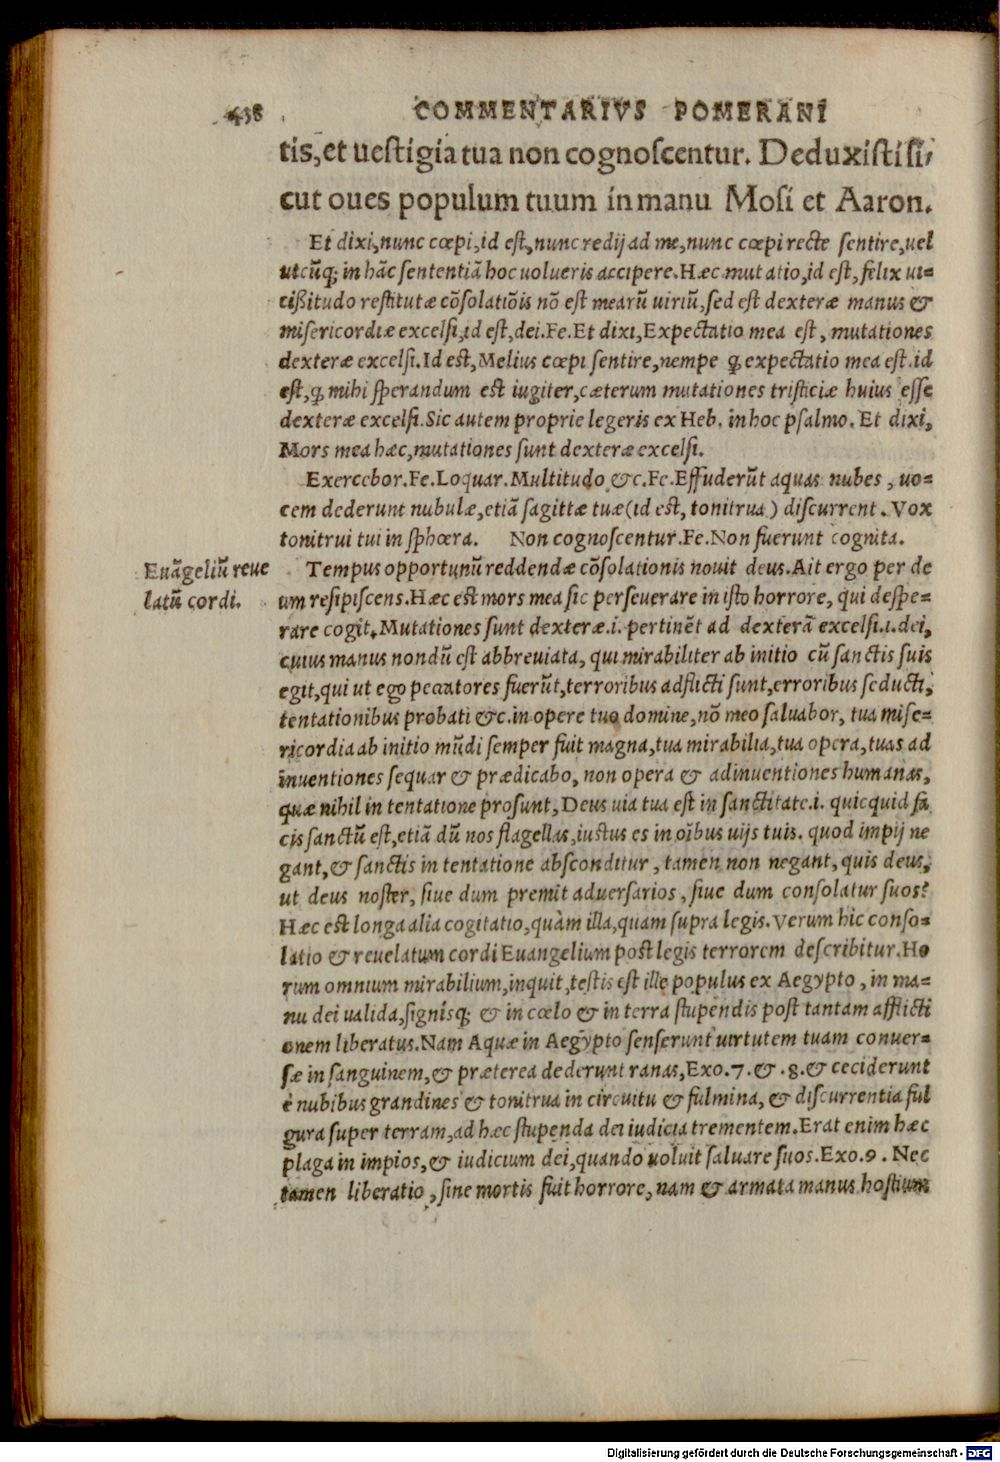 438 COMMENTARIVS POMERANI
tis, et uestigia tua non cognoscentur. Deduxisti si-
cut oues populum tuum in manu Mosi et Aaron.
Et dixi, nunc cœpi, id est, nunc redij ad me, nunc cœpi recte sentire, uel
utcũq; in hãc sententiã hoc uolueris accipere. Hæc mutatio, id est, felix ui=
cißitudo restitutæ cõsolatiõis nõ est mearũ uiriũ, sed est dexteræ manus &
misericordiæ excelsi, id est, dei. Fe. Et dixi, Expectatio mea est, mutationes
dexteræ excelsi. Id est, Melius cœpi sentire, nempe ꝙ expectatio mea est. id
est, ꝙ mihi sperandum est iugiter, cæterum mutationes tristiciæ huius esse
dexteræ excelsi. Sic autem proprie legeris ex Heb. in hoc psalmo. Et dixi,
Mors mea hæc, mutationes sunt dexteræ excelsi.
Exercebor. Fe. Loquar. Multitudo &c. Fe. Effuderũt aquas nubes, uo=
cem dederunt nubulæ, etiã sagittæ tuæ (id est, tonitrua) discurrent. Vox
tonitrui tui in sphœra. Non cognoscentur. Fe. Non fuerunt cognita.
Euãgeliũ reue
latũ cordi.
Tempus opportunũ reddendæ cõsolationis nouit deus. Ait ergo per de
um resipiscens. Hæc est mors mea sic perseuerare in isto horrore, qui despe=
rare cogit. Mutationes sunt dexteræ .i. pertinẽt ad dexterã excelsi .i. dei,
cuius manus nondũ est abbreuiata, qui mirabiliter ab initio cũ sanctis suis
egit, qui ut ego peccatores fuerũt, terroribus adflicti sunt, erroribus seducti,
tentationibus probati &c. in opere tuo domine, nõ meo saluabor, tua mise=
ricordia ab initio mũdi semper fuit magna, tua mirabilia, tua opera, tuas ad
inuentiones sequar & prædicabo, non opera & adinuentiones humanas,
quæ nihil in tentatione prosunt, Deus uia tua est in sanctitate .i. quicquid fa
cis sanctũ est, etiã dũ nos flagellas, iustus es in oĩbus uijs tuis. quod impij ne
gant, & sanctis in tentatione absconditur, tamen non negant, quis deus,
ut deus noster, siue dum premit aduersarios, siue dum consolatur suos?
Hæc est longa alia cogitatio, quàm illa, quam supra legis. Verum hic conso=
latio & reuelatum cordi Euangelium post legis terrorem describitur. Ho
rum omnium mirabilium, inquit, testis est ille populus ex Aegypto, in ma=
nu dei ualida, signísq; & in cœlo & in terra stupendis post tantam afflicti
onem liberatus. Nam Aquæ in Aegypto senserunt uirtutem tuam conuer=
sæ in sanguinem, & præterea dederunt ranas, Exo. 7. & .8. & ceciderunt
è nubibus grandines & tonitrua in circuitu & fulmina, & discurrentia ful
gura super terram, ad hæc stupenda dei iudicia trementem. Erat enim hæc
plaga in impios, & iudicium dei, quando uoluit saluare suos. Exo. 9. Nec
tamen liberatio, sine mortis fuit horrore, nam & armata manus hostium
Digitalisierung gefördert durch die Deutsche Forschungsgemeinschaft - DFG